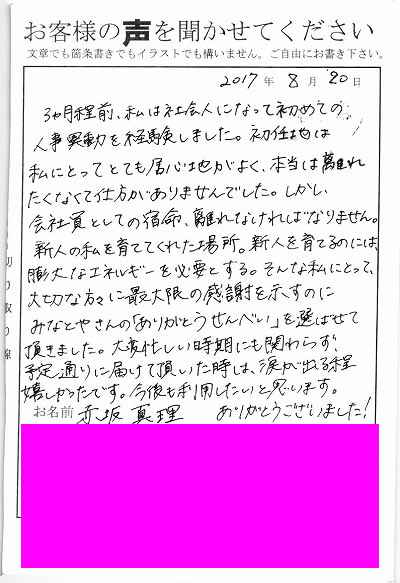 お客様の声を聞かせてください
文章でも箇条書きでもイラストでも構いません。ご自由にお書き下さい。
2017年 8月 20日
3ヵ月程前、私は社会人になって初めての
人事異動を経験しました。初任地は
私にとってとても居心地がよく、本当は離れ
たくなくて仕方がありませんでした。しかし
会社員としての宿命、離れなければなりません。
新人の私を育ててくれた場所。新人を育てるのには、
膨大なエネルギーを必要とする。そんな私にとって、
大切な方々に最大限の感謝を示すのに
みなとやさんの「ありがとうせんべい」を選ばせて
頂きました。大変忙しい時期にも関わらず
予定通りに届けて頂いた時は、涙が出る程
嬉しかったです。今後も利用したいと思います。
ありがとうございました!
お名前 赤坂 真理
切り取り線